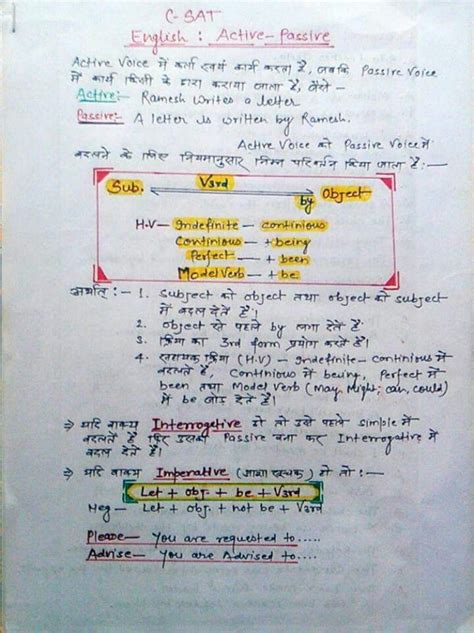 C-SAT
English : Active-Passive
Active Voice में कर्ता स्वयं कार्य करता है, जबकि Passive Voice
में कार्य किसी के द्वारा कराया जाता है, जैसे -
Active:- Ramesh writes a letter
Passive:- A letter is written by Ramesh.
Active Voice को Passive Voice में
बदलने के लिए नियमानुसार निम्न परिवर्तन किया जाता है:-
Sub. V3rd by Object
H.V- Indefinite - continious
Continious - + being
Perfect - + been
Model Verb - + be
अर्थात् :- 1. Subject को object तथा object को subject
में बदल देते हैं।
2. object से पहले by लगा देते हैं
3. क्रिया का 3rd form प्रयोग करते हैं।
4. सहायक क्रिया (H.V) - Indefinite-continious में
बदलते हैं, Continious में being, Perfect में
been तथा Model Verb (May, Might, can, could)
में be जोड़ देते हैं।
⇒ यदि वाक्य Interrogetive हो तो उसे पहले simple में
बदलते हैं फिर उसका Passive बना कर Interrogative में
बदल देते हैं।
⇒ यदि वाक्य Imperative (आज्ञा सूचक) हो तो :-
Let + obj. + be + V3rd
Neg - Let + obj + not be + V3rd
Please - You are requested to.....
Advise - You are Advised to....